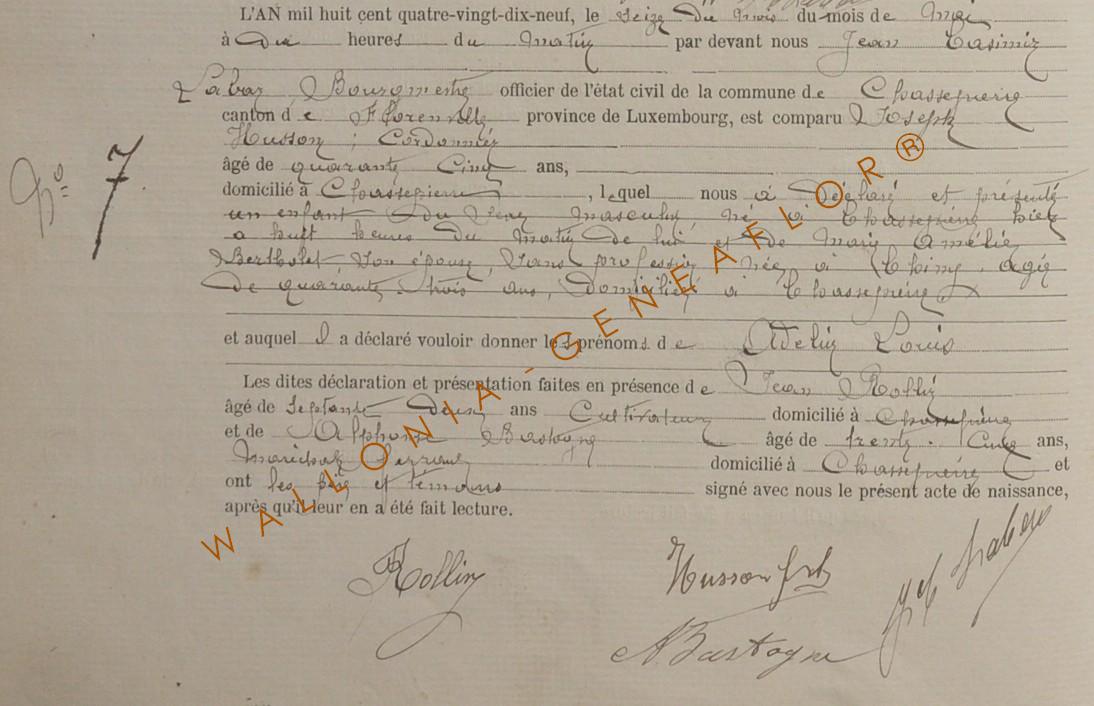 L'AN mil huit cent quatre-vingt-dix-neuf, le seize du mois du mois de Mai
à dix heures du matin par devant nous Jean Casimir
Bourgmestre officier de l'état civil de la commune de Chassepierre
canton de Florenville province de Luxembourg, est comparu Joseph
Husson, Cordonnier
âgé de quarante Cinq ans,
domicilié à Chassepierre, lequel nous a déclaré et présenté
un enfant du sexe masculin, né à Chassepierre hier
a huit heures du matin de lui et de Marie Amélie
Bertholet son épouse, sans profession née à Chiny, agée
de quarante trois ans, domiciliée à Chassepierre
et auquel il a déclaré vouloir donner les prénoms de Adelin Louis
Les dites déclaration et présentation faites en présence de Jean Rollin
âgé de septante deux ans Cultivateur domicilié à Chassepierre
et de Alphonse Bastogne âgé de trente Cinq ans,
Maréchal ferrant domicilié à Chassepierre et
ont les père et témoins signé avec nous le présent acte de naissance,
après qu'il leur en a été fait lecture.
N° 7
Rollin
Husson
A Bastogne
WALLONIA-GENEAFLOR®